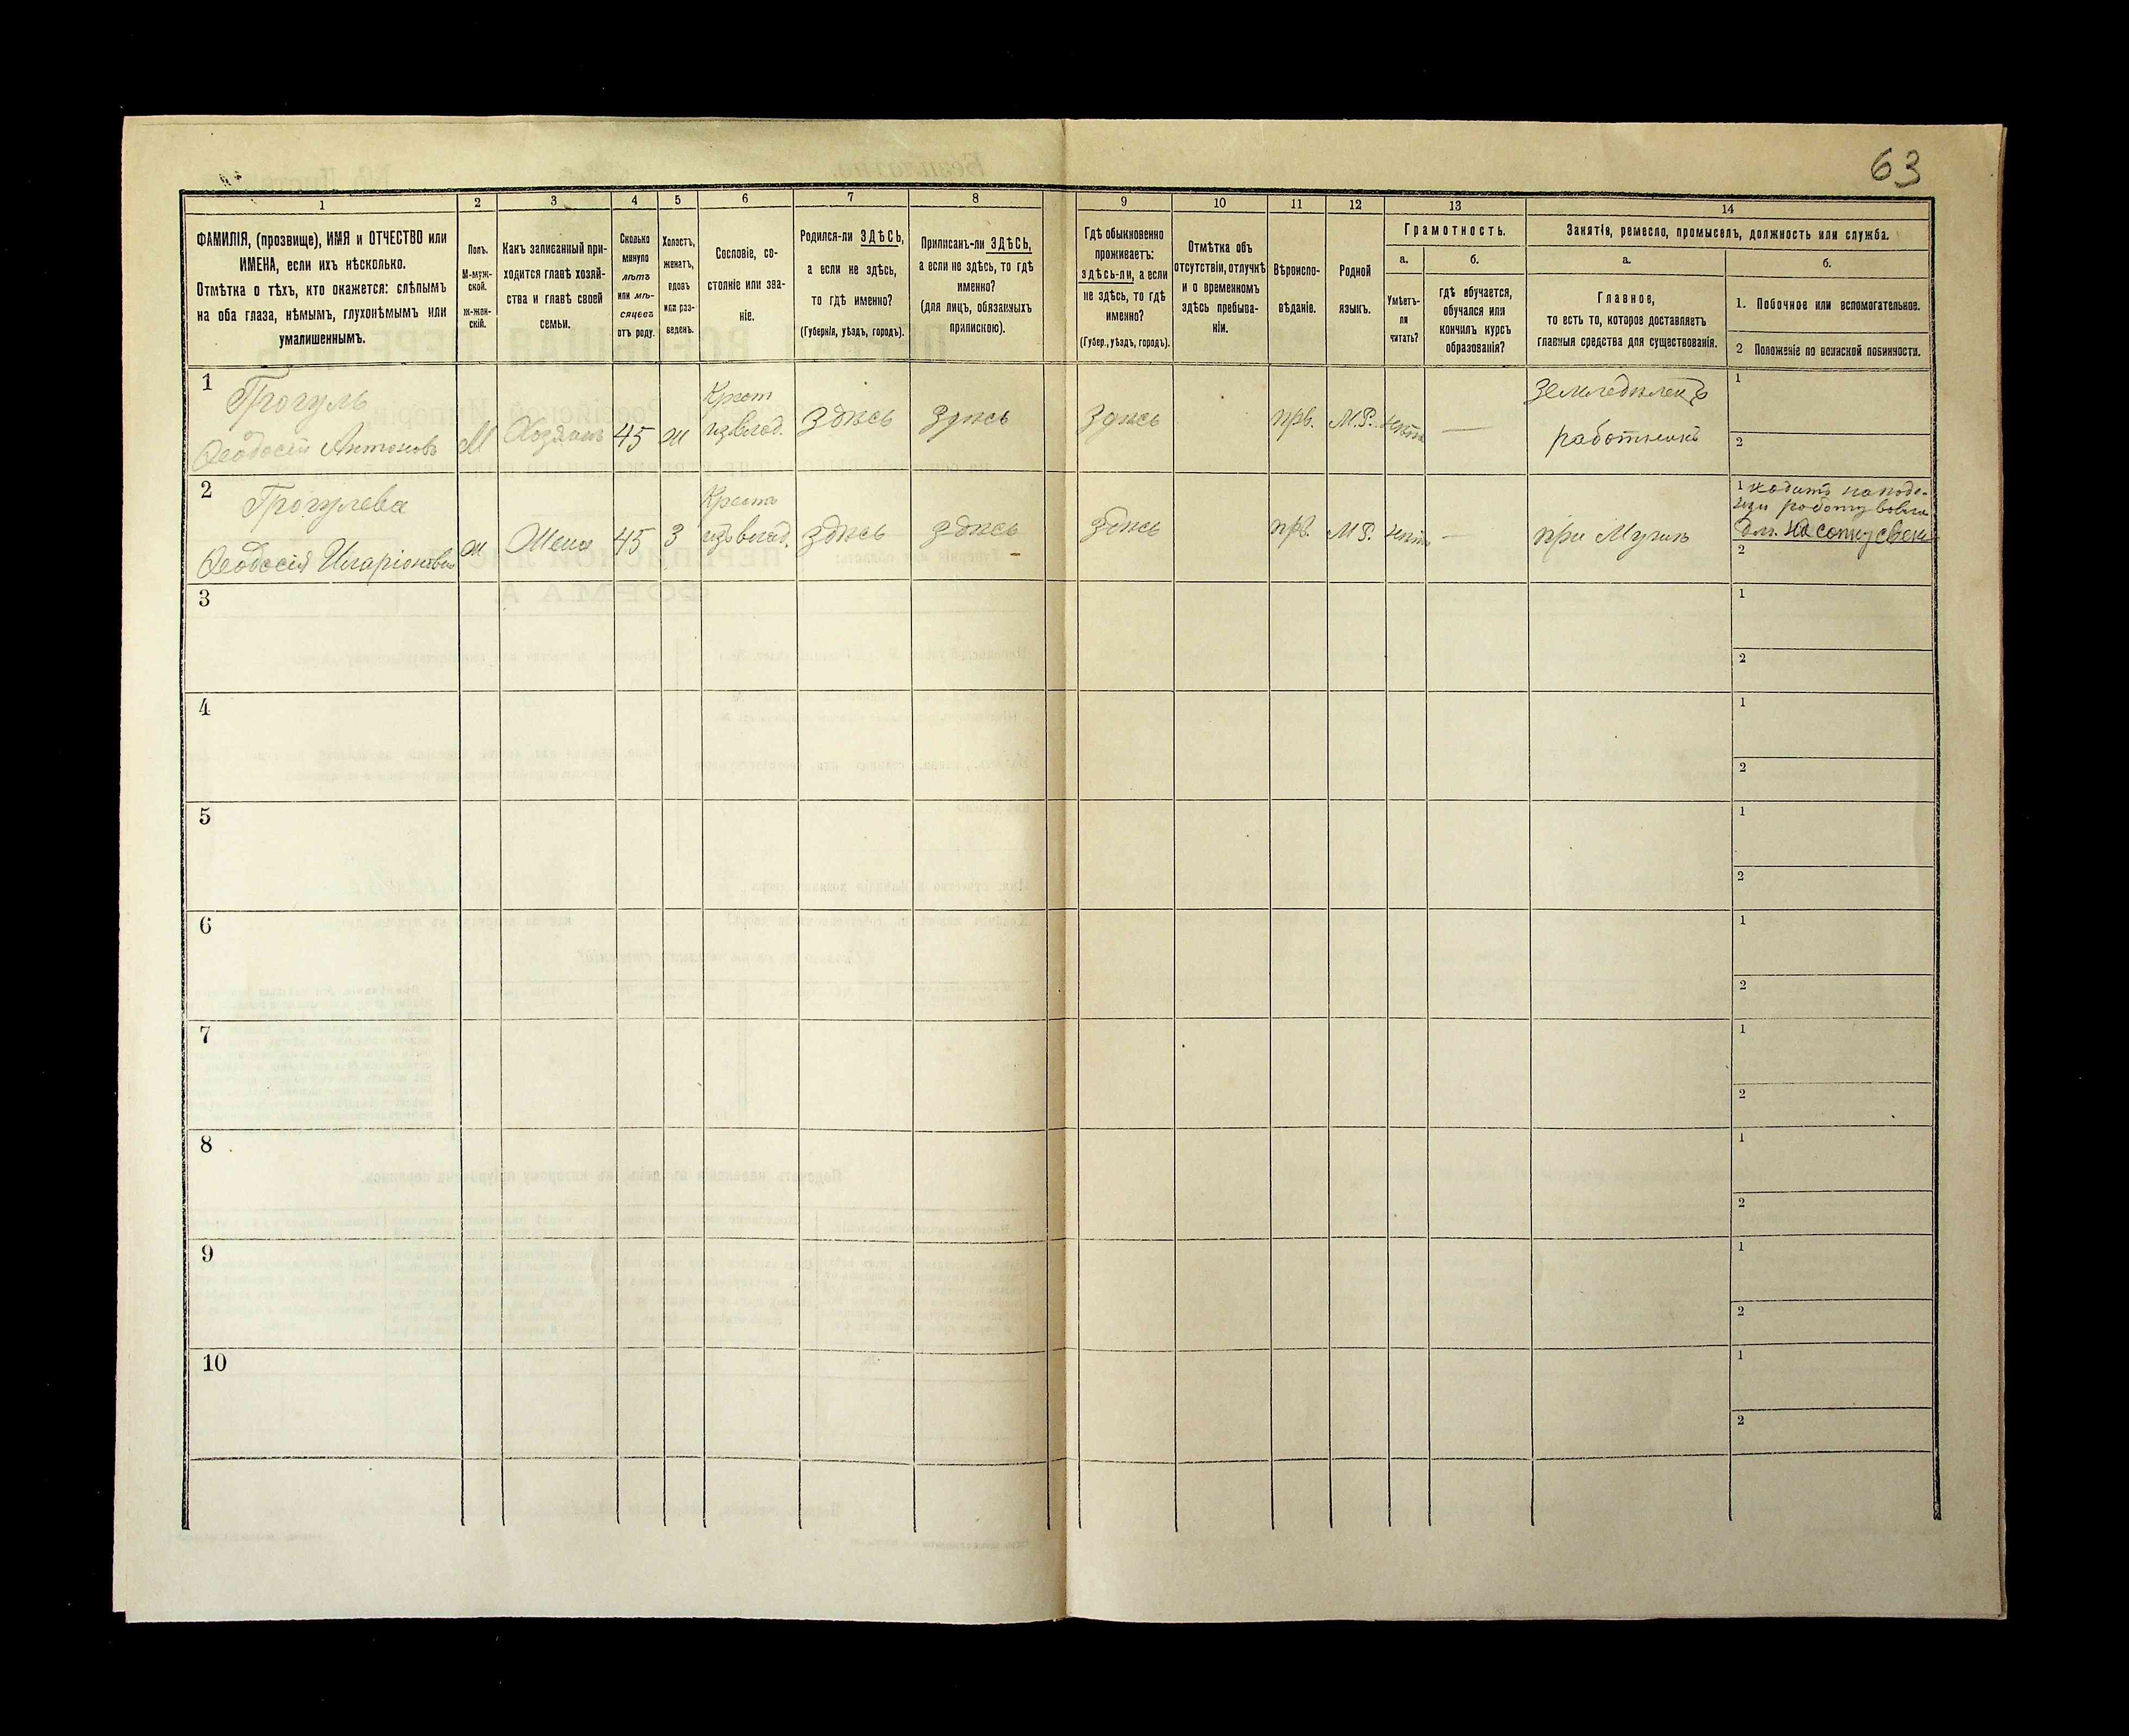 63
1 2 3 4 5 6 7 8 9 10 11 12 13 14
ФАМИЛІЯ, (прозвище), ИМЯ и ОТЧЕСТВО или
ИМЕНА, если ихъ нѣсколько.
Отмѣтка о тѣхъ, кто окажется: слѣпымъ
на оба глаза, нѣмымъ, глухонѣмымъ или
умалишеннымъ.
Полъ.
М-муж-
ской.
ж-жен-
скій.
Какъ записанный при-
ходится главѣ хозяй-
ства и главѣ своей
семьи.
Сколько
минуло
лѣтъ
или мѣ-
сяцевъ
отъ роду.
Холостъ,
женатъ,
вдовъ
или раз-
веденъ.
Сословіе, со-
стояніе или зва-
ніе.
Родился-ли ЗДѢСЬ,
а если не здѣсь,
то гдѣ именно?
(Губернія, уѣздъ, городъ).
Приписанъ-ли ЗДѢСЬ,
а если не здѣсь, то гдѣ
именно?
(для лицъ, обязанныхъ
припискою).
Гдѣ обыкновенно
проживаетъ:
здѣсь-ли, а если
не здѣсь, то гдѣ
именно?
(Губер., уѣздъ, городъ).
Отмѣтка объ
отсутствіи, отлучкѣ
и о временномъ
здѣсь пребыва-
ніи.
Вѣроиспо-
вѣданіе.
Родной
языкъ.
Грамотность.
а.
Умѣетъ-
ли
читать?
б.
гдѣ обучается,
обучался или
кончилъ курсъ
образованія?
Занятіе, ремесло, промыселъ, должность или служба.
а.
Главное,
то есть то, которое доставляетъ
главныя средства для существованія.
б.
1. Побочное или вспомогательное.
2 Положеніе по воинской повинности.
1
Трогуль
Феодосій Антоновъ
М
Хозяинъ
45
ж
Крест
изъ влад.
Здѣсь
Здѣсь
Здѣсь
прв.
М.Р.
нѣтъ
—
земледѣлецъ
работникъ
1
2
2
Трогулева
Феодосія Иларіонова
ж
Жена
45
З
Крестъ
изъ влад.
здѣсь
здѣсь
здѣсь
прв.
М.Р.
нѣтъ
—
при Мужѣ
1 ходитъ на
работу
2
3
1
2
4
1
2
5
1
2
6
1
2
7
1
2
8
1
2
9
1
2
10
1
2